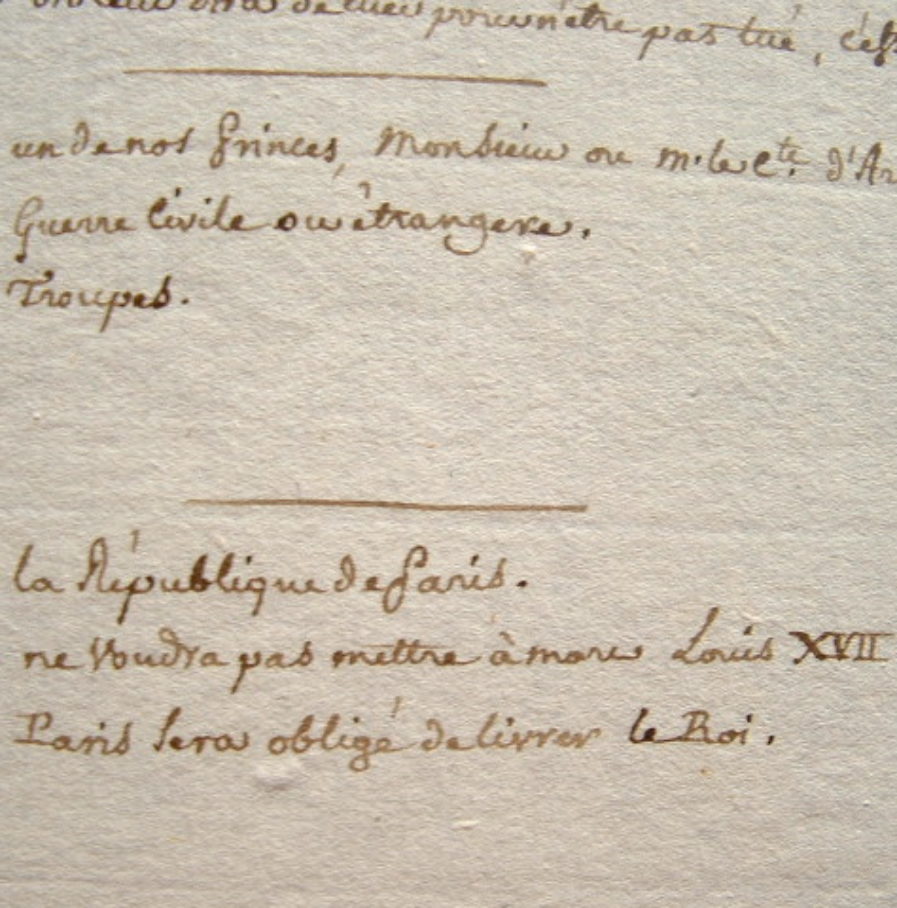 de tuer pour n'être pas tué, c'est
un de nos Princes, Monsieur ou m. le Cte. d'Ar
Guerre Civile ou étrangere.
Troupes.
la République de Paris.
ne Voudra pas mettre à mort Louis XVII
Paris Sera obligé de livrer le Roi.